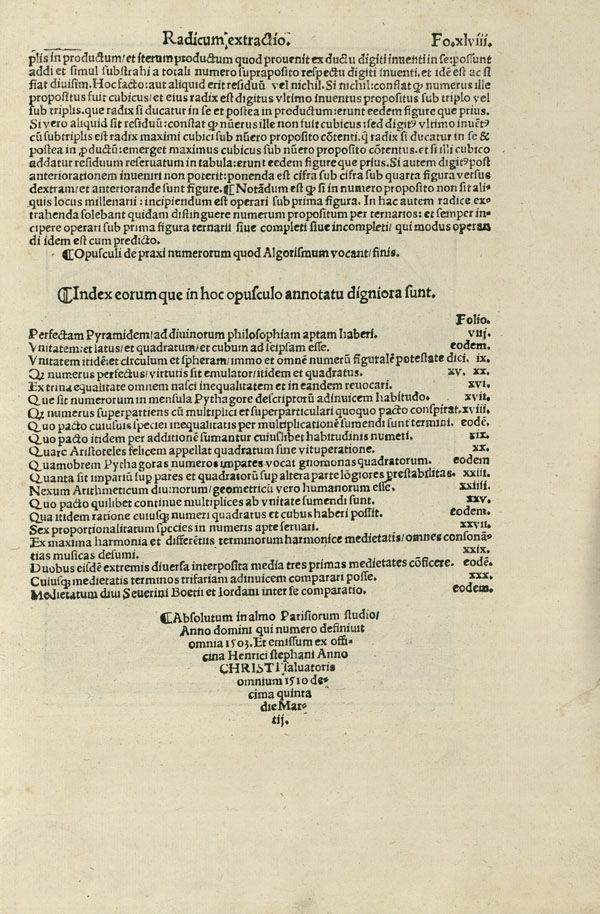 Radicum extractio. Fo.xlviii.
plis in productum/ et iterum productum quod prouenit ex ductu digiti inuenti in se: possunt
addi et simul substrahi a totali numero supraposito respectu digiti inuenti. et idē est ac si
fiat diuisim. Hoc facto: aut aliquid erit residuū vel nichil. Si nichil: constat ꝙ numerus ille
propositus fuit cubicus/ et eius radix est digitus vltimo inuentus propositus sub triplo vel
sub triplis. que radix si ducatur in se et postea in productum: erunt eedem figure que prius.
Si vero aliquid sit residuū: constat ꝙ nūerus ille non fuit cubicus: sed digitꝰ vltimo inuētꝰ
cū subtriplis est radix maximi cubici sub nūero proposito cōtenti. q̄ radix si ducatur in se &
postea in ꝓductū: emerget maximus cubicus sub nūero proposito cōtentus. et si illi cubico
addatur residuum reseruatum in tabula: erunt eedem figure que prius. Si autem digitꝰ post
anteriorationem inueniri non poterit: ponenda est cifra sub cifra sub quarta figura versus
dextram/ et anteriorande sunt figure. ¶ Notādum est ꝙ si in numero proposito non sit ali-
quis locus millenarii: incipiendum est operari sub prima figura. In hac autem radice ex-
trahenda solebant quidam distinguere numerum propositum per ternarios: et semper in-
cipere operari sub prima figura ternarii siue completi siue incompleti/ qui modus operan
di idem est cum predicto.
¶ Opusculi de praxi numerorum quod Algorismum vocant/ finis.
¶ Index eorum que in hoc opusculo annotatu digniora sunt.
Folio.
Perfectam Pyramidem/ ad diuinorum philosophiam aptam haberi. viij.
Vnitatem: et latus/ et quadratum/ et cubum ad seipsam esse. eodem.
Vnitatem itidē: et circulum et spheram/ immo et omnē numerū figuralē potestate dici. ix.
Qꝫ numerus perfectus/ virtutis sit emulator/ itidem et quadratus. xv. xx.
Ex trina equalitate omnem nasci inequalitatem et in eandem reuocari. xvi.
Que sit numerorum in mensula Pythagore descriptorū adinuicem habitudo. xvii.
Qꝫ numerus superpartiens cū multiplici et superparticulari quoquo pacto conspirat. xviii.
Quo pacto cuiusuis speciei inequalitatis per multiplicationē sumendi sunt termini. eodē.
Quo pacto itidem per additionē sumantur cuiuslibet habitudinis numeri. xix.
Quare Aristoteles felicem appellat quadratum sine vituperatione. xx.
Quamobrem Pythagoras numeros impares vocat gnomonas quadratorum. eodem
Quanta sit impariū sup pares et quadratorū sup altera parte lōgiores prestabilitas. xxiii.
Nexum Arithmeticum diuinorum/ geometricū vero humanorum esse. xxiiii.
Quo pacto quilibet continue multiplices ab vnitate sumendi sunt. xxv.
Qua itidem ratione cuiusqꝫ et cubus haberi possit. eodem.
Sex proportionalitatum species in numeris apte seruari. xxvii.
Ex maxima harmonia et differētiis terminorum harmonice medietatis/ omnes consonā-
tias musicas desumi. xxix.
Duobus eisdē extremis diuersa interposita media tres primas medietates cōficere. eodē.
Cuiusqꝫ medietatis terminos trifariam adinuicem comparari posse. xxx.
Medietatum diui Seuerini Boetii et Iordani inter se comparatio. eodem.
¶ Absolutum in almo Parisiorum studio/
Anno domini qui numero definiuit
omnia 1503. Et emissum ex offi-
cina Henrici stephani Anno
CHRISTI saluatoris
omnium 1510 de-
cima quinta
die Mar-
tij.